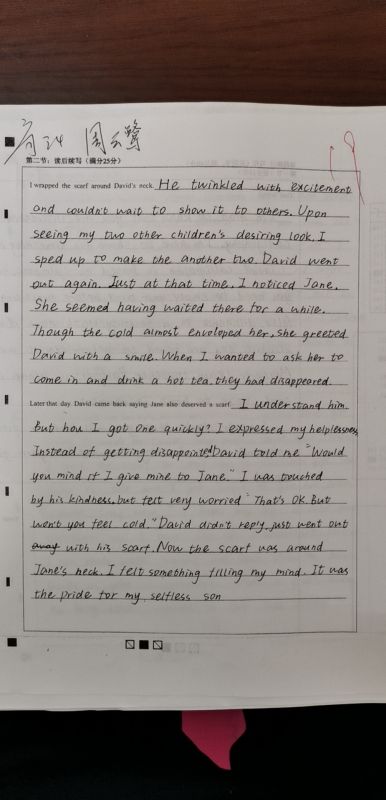 高二4 周云鹭
19
第二节：读后续写（满分25分）
I wrapped the scarf around David's neck. He twinkled with excitement
and couldn't wait to show it to others. Upon
seeing my two other children's desiring look, I
sped up to make the another two. David went
out again. Just at that time, I noticed Jane.
She seemed having waited there for a while.
Though the cold almost enveloped her, she greeted
David with a smile. When I wanted to ask her to
come in and drink a hot tea, they had disappeared.
Later that day David came back saying Jane also deserved a scarf. I understand him.
But how I got one quickly? I expressed my helplessness,
Instead of getting disappointed David told me "Would
you mind if I give mine to Jane." I was touched
by his kindness, but felt very worried "That's OK. But
won't you feel cold." David didn't reply, just went out
away with his scarf. Now the scarf was around
Jane's neck. I felt something filling my mind. It was
the pride for my selfless son